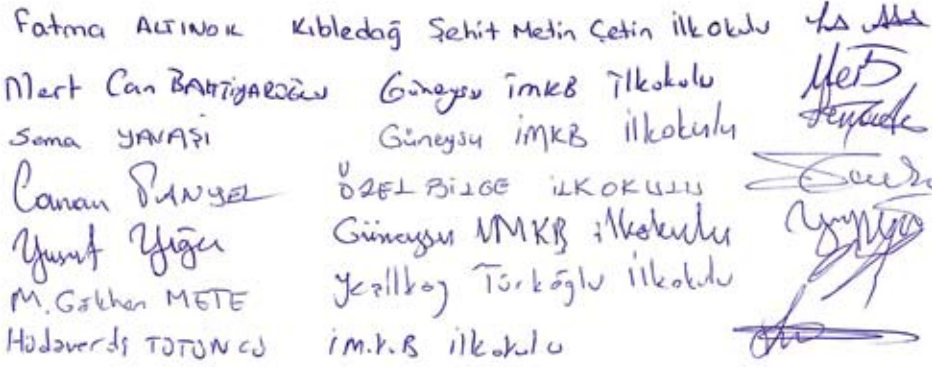 Fatma ALTINOK Kıbledağ Şehit Metin Çetin İlkokulu
Mert Can BAHTİYAROĞLU Güneysu İMKB İlkokulu
Sema YAVAŞİ Güneysu İMKB İlkokulu
Canan ÖZEL BİLGE İLKOKULU
Yusuf Yiğit Güneysu İMKB ilkokulu
M. Gökhan METE Yeşilköy Türkoğlu İlkokulu
Hüdaverdi TÜTÜNCÜ İM.K.B ilkokulu